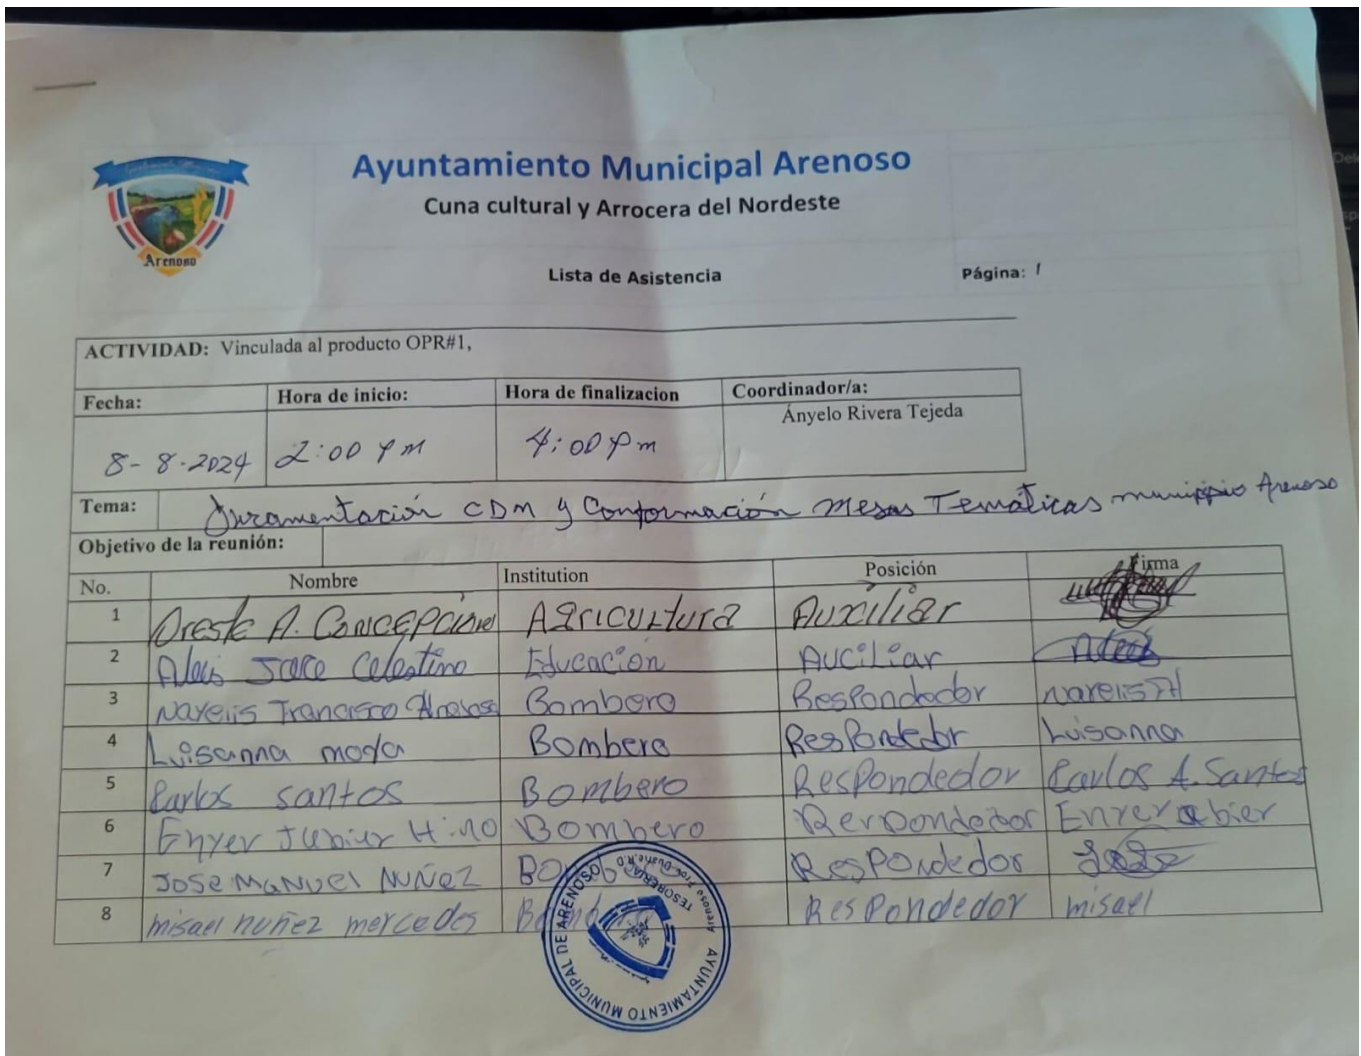 Ayuntamiento Municipal Arenoso
Cuna cultural y Arrocera del Nordeste
Arenoso
Lista de Asistencia
Página: 1
ACTIVIDAD: Vinculada al producto OPR#1,
Fecha: Hora de inicio: Hora de finalizacion Coordinador/a:
8-8-2024 2:00 pm 4:00 pm Ányelo Rivera Tejeda
Tema: Juramentación CDM y Conformación Mesas Tematicas municipio Arenoso
Objetivo de la reunión:
No. Nombre Institution Posición Firma
1 Oreste A. Concepción Agricultura Auxiliar
2 Celestino Educacion Auciliar
3 Narelis Francisco Bombero Respondedor Narelis
4 Luisanna moya Bombero Respondedor Luisanna
5 Carlos santos Bombero Respondedor Carlos A. Santos
6 Enyer Bombero Enyer
7 Jose Manuel Nuñez Respondedor
8 misael nuñez mercedes Respondedor misael
AYUNTAMIENTO MUNICIPAL DE ARENOSO
TESORERIA
Arenoso Prov. Duarte, R.D.